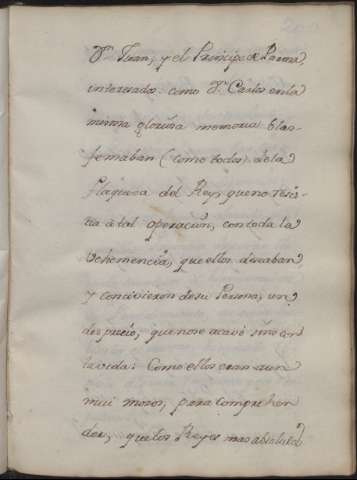 Dⁿ Juan, y el Principe de Parma,
interesados como Dⁿ Carlos en la
misma gloriosa memoria blas-
femaban (como todos) de la
flaqueza del Rey, que no resis-
tia à tal operacion, con toda la
vehemencia, que ellos deseaban,
y concivieron de su Persona, un
desprecio, que no se acavó sino con
la vida: Como ellos eran aun
mui mozos, para comprehen
der, que los Reyes mas absolutos